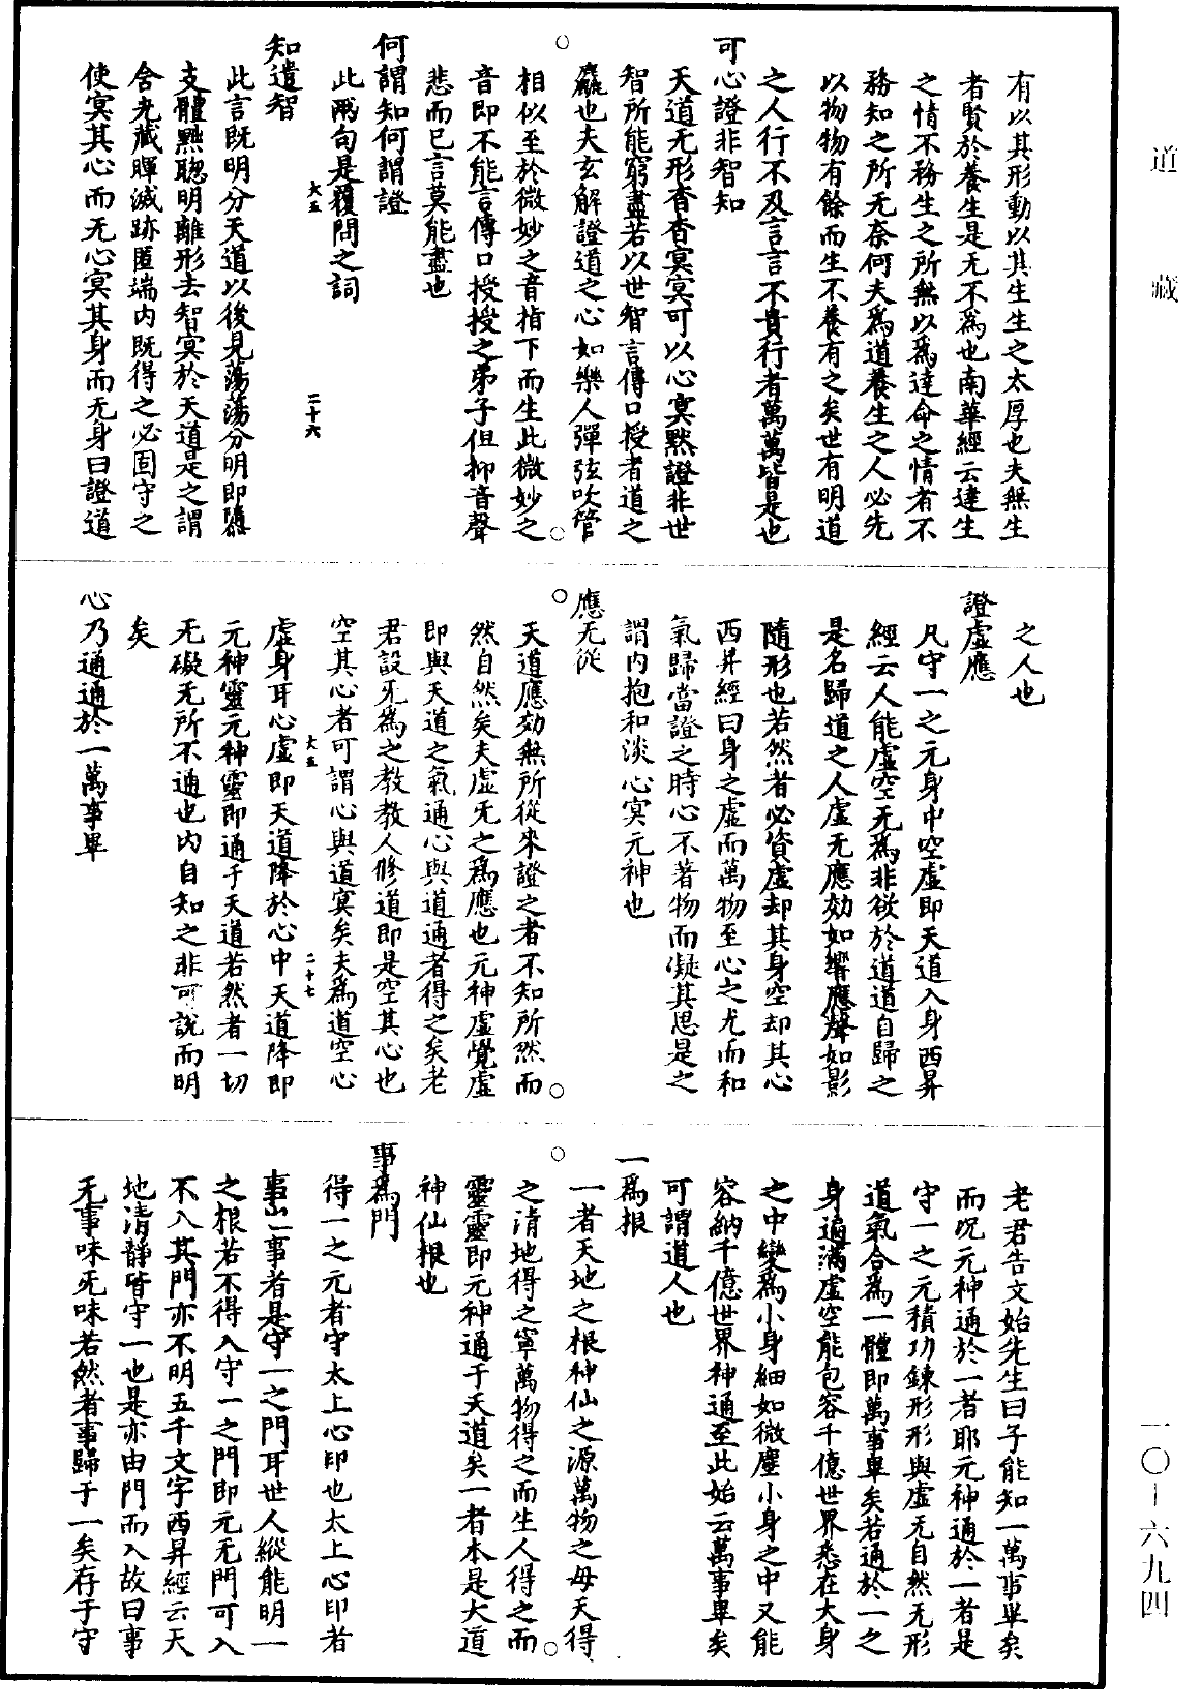 道藏
有以其形動以其生生之太厚也夫無生
者賢於養生是无不為也南華經云達生
之情不務生之所無以為達命之情者不
務知之所无奈何夫為道養生之人必先
以物物有餘而生不養有之矣世有明道
之人行不及言言不貴行者萬萬皆是也
可心證非智知
天道无形杳杳冥冥可以心冥默證非世
智所能窮盡若以世智言傳口授者道之
麤也夫玄解證道之心如樂人彈弦吹管
相似至於微妙之音指下而生此微妙之
音即不能言傳口授授之弟子但抑音聲
悲而已言莫能盡也
何謂知何謂證
此兩句是覆問之詞
大五 二十六
知遣智
此言既明分天道以後見蕩蕩分明即隳
支體黜聰明離形去智冥於天道是之謂
含光藏暉滅跡匿端內既得之必固守之
使冥其心而无心冥其身而无身曰證道
之人也
證虛應
凡守一之元身中空虛即天道入身西昇
經云人能虛空无為非欲於道道自歸之
是名歸道之人虛无應効如響應聲如影
隨形也若然者必資虛却其身空却其心
西昇經曰身之虛而萬物至心之尤而和
氣歸當證之時心不著物而凝其思是之
謂內抱和淡心冥元神也
應无從
天道應効無所從來證之者不知所然而
然自然矣夫虛无之為應也元神虛覺虛
即與天道之氣通心與道通者得之矣老
君設无為之教教人修道即是空其心也
空其心者可謂心與道冥矣夫為道空心
大五 二十七
虛身耳心虛即天道降於心中天道降即
元神靈元神靈即通于天道若然者一切
无礙无所不通也內自知之非可說而明
矣
心乃通通於一萬事畢
老君告文始先生曰子能知一萬事畢矣
而況元神通於一者耶元神通於一者是
守一之元積功鍊形形與虛无自然无形
道氣合為一體即萬事畢矣若通於一之
身遍滿虛空能包容千億世界悉在大身
之中變為小身細如微塵小身之中又能
容納千億世界神通至此始云萬事畢矣
可謂道人也
一為根
一者天地之根神仙之源萬物之母天得
之清地得之寧萬物得之而生人得之而
靈靈即元神通于天道矣一者本是大道
神仙根也
事為門
得一之元者守太上心印也太上心印者
事出一事者是守一之門耳世人縱能明一
之根若不得入守一之門即元无門可入
不入其門亦不明五千文字西昇經云天
地清靜皆守一也是亦由門而入故曰事
无事味无味若然者事歸于一矣存于守
一〇-六九四